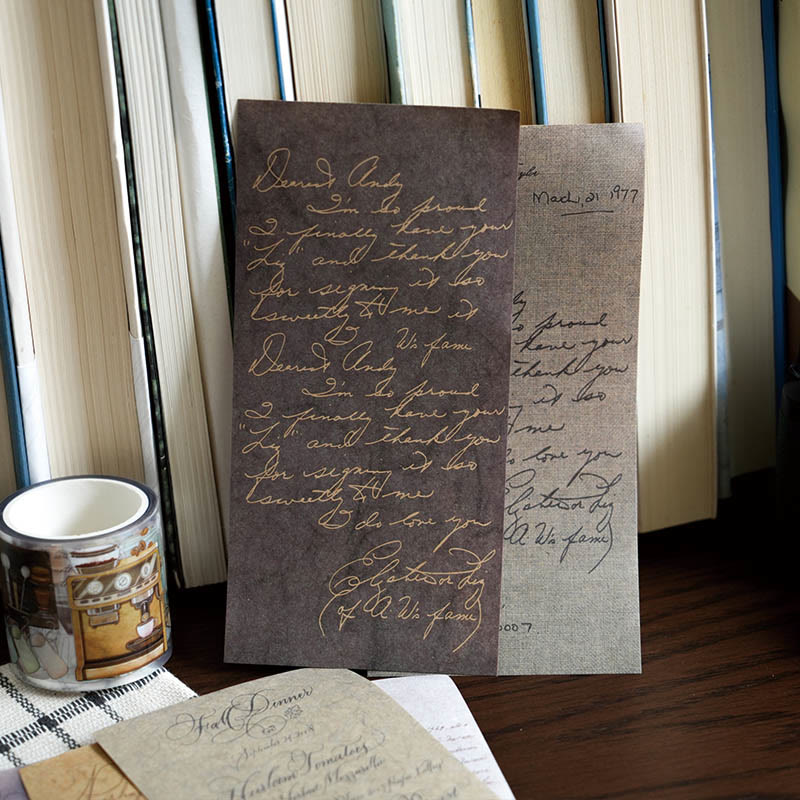 Dearest Andy
I'm so proud
I finally have your
"Liz" and thank you
for signing it so
sweetly to me it
W's fame
Dearest Andy
I'm so proud
I finally have your
"Liz" and thank you
for signing it so
sweetly to me
I do love you
Elizabeth or Liz
(of A W's fame)
Mach, 21 1977
so proud
have your
thank you
it so
me
do love you
or Liz
A W's fame)
0007
Fall Dinner
Heirloom Tomatoes
Mozzarella
Napa Valley